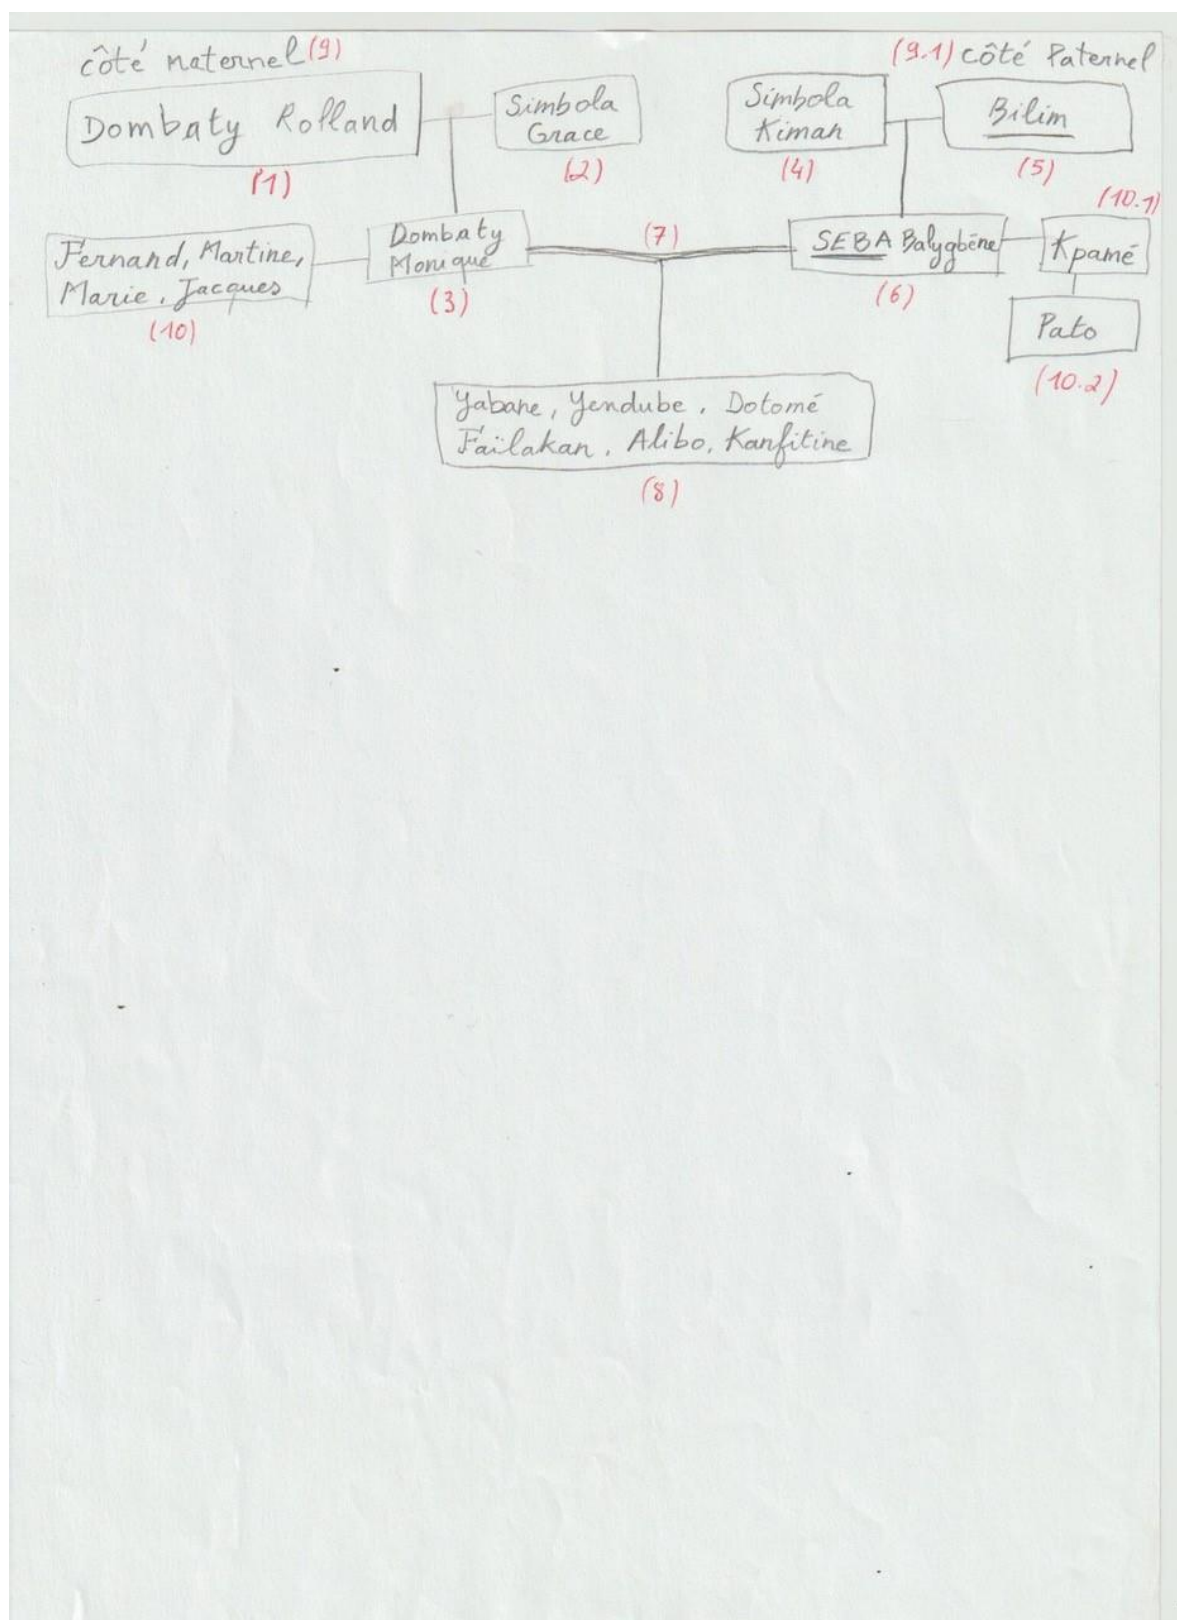 côté maternel (9)
(9.1) côté Paternel
Dombaty Rolland
(1)
Simbola
Grace
(2)
Simbola
Kiman
(4)
Bilim
(5)
Fernand, Martine,
Marie, Jacques
(10)
Dombaty
Monique
(3)
(7)
SEBA Balygbène
(6)
(10.1)
Kpamé
Pato
(10.2)
Yabane, Yendube, Dotomé
Faïlakan, Alibo, Kanfitine
(8)